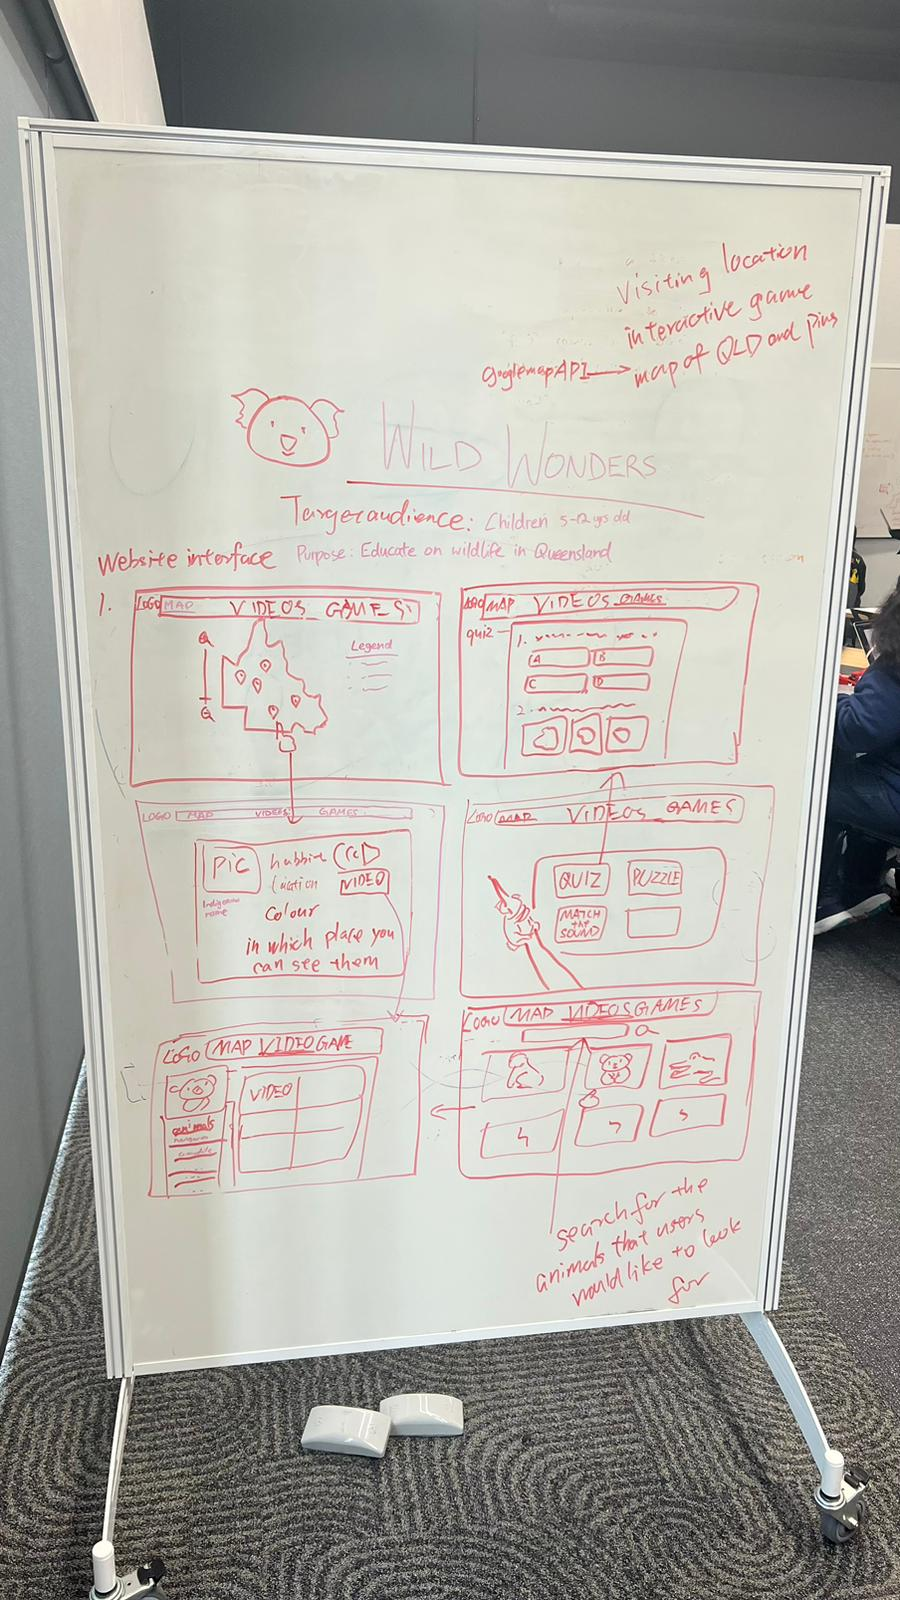 visiting location
interactive game
googlemapAPI → map of QLD and pins
WILD WONDERS
Target audience: Children 5-12 yrs old
Website interface Purpose: Educate on wildlife in Queensland
1.
LOGO MAP VIDEOS GAMES
Legend
LOGO MAP VIDEOS GAMES
quiz
1.
A B
C D
2.
LOGO MAP VIDEOS GAMES
PIC
location VIDEO
Indigenous name
colour
in which place you
can see them
LOGO MAP VIDEOS GAMES
QUIZ PUZZLE
MATCH
the
SOUND
LOGO MAP VIDEO GAME
VIDEO
animals
LOGO MAP VIDEOS GAMES
search for the
animals that users
would like to look
for